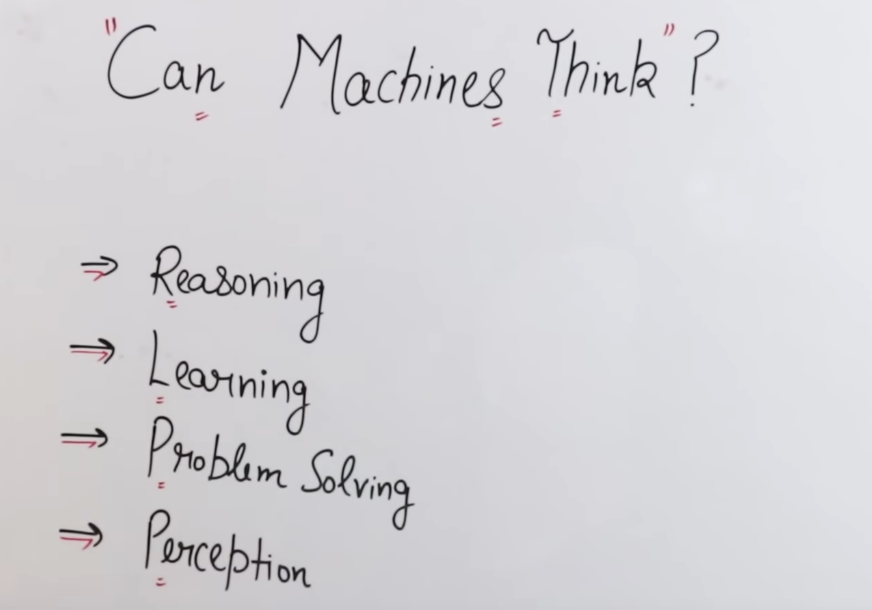 "Can Machines Think"?
⇒ Reasoning
⇒ Learning
⇒ Problem Solving
⇒ Perception